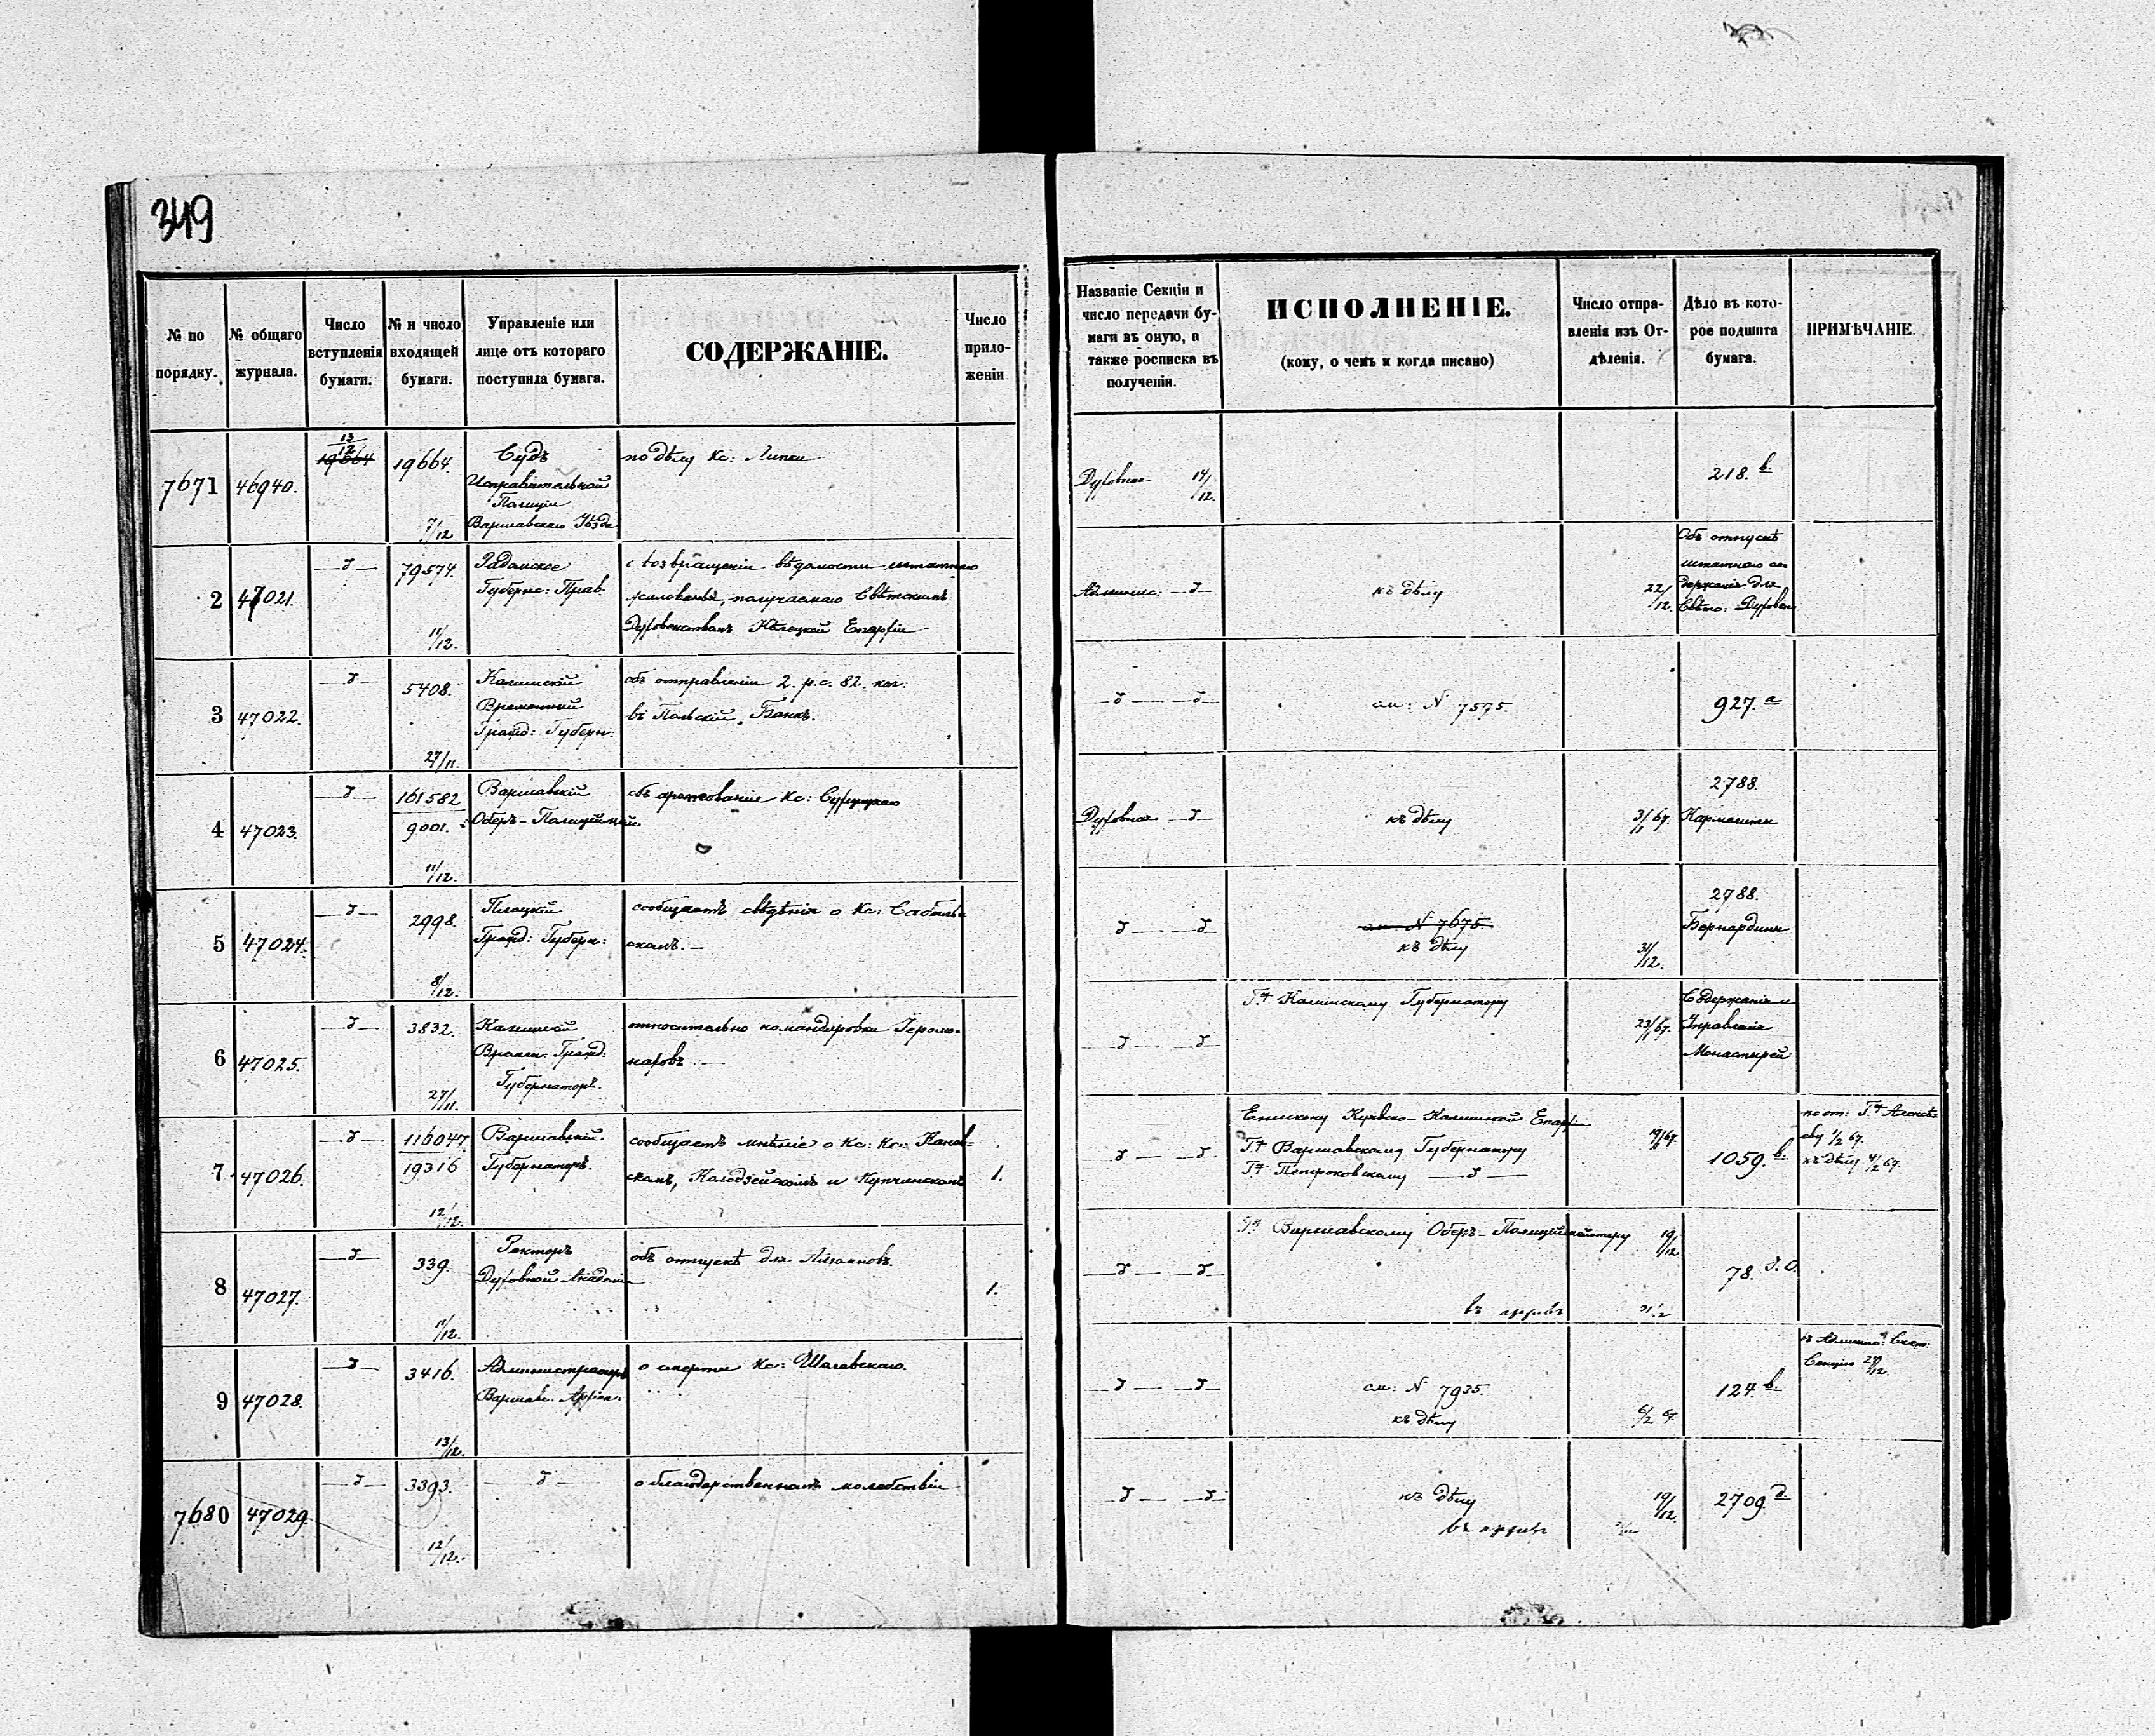 349
№ по порядку.
№ общаго журнала.
Число вступленія бумаги.
№ и число входящей бумаги.
Управленіе или лице отъ котораго поступила бумага.
СОДЕРЖАНІЕ.
Число приложеніи
Названіе Секціи и число передачи бумаги въ оную, а также росписка въ полученіи.
ИСПОЛНЕНІЕ.
(кому, о чемъ и когда писано)
Число отправленія изъ Отдѣленія.
Дѣло въ которое подшита бумага.
ПРИМѢЧАНІЕ
7671 46940. 13/12 19664 19664. 7/12
Судъ
Исправительной
Полиціи
Варшавскаго Уѣзда
по дѣлу Кс: Липки
Духовное 14/12. 218. в.
2 47021. 79574. 11/12.
Радомское
Губернс: Прав.
с возвращеніи вѣдомости штатнаго
жалованья, получаемаго Свѣтскимъ
Духовенствомъ Кѣлецкой Епархіи
Админис: къ дѣлу 22/12.
Объ отпускѣ
штатнаго со-
держанія для
Свѣтс: Духовен
3 47022. 5408. 27/11.
Калишскій
Временный
Гражд: Губерн:
объ отправленіи 2. р. с. 82. коп:
въ Польскій Банкъ.
см: N 7575 927. а
4 47023. 161582 / 9001. 11/12.
Варшавскій
Оберъ-Полицій
Кс:
Духовное къ дѣлу 3/1 67.
2788.
Кармелиты
5 47024. 2998. 8/12.
Плоцкій
Гражд: Губерн:
сообщаетъ свѣдѣнія о Кс:
скомъ.
см N 7675
къ дѣлу
31/12.
2788.
Бернардины
6 47025. 3832. 27/11.
Калишскій
Времен. Гражд:
Губернаторъ.
относительно командировки Іеромо-
наховъ
Гну Калишскому Губернатору
23/1 67.
Содержаніе и
Управленіе
Монастырей
7. 47026. 116047 / 19316 12/12.
Варшавскій
Губернаторъ.
сообщаетъ мнѣніе о Кс: Кс: Канов-
скомъ, Колодзейскомъ и Купчинскомъ 1.
Епископу Куявско-Калишской Епархіи
Гну Варшавскому Губернатору
Гну Петроковскому
19/1 67.
1059. в.
къ дѣлу 4/2 67.
8 47027. 339. 11/12.
Ректоръ
Духовной Академіи
объ отпускѣ для Алюмновъ. 1.
Гну Варшавскому Оберъ-Полиціймейстеру 19/12
въ архивъ
78.
9 47028. 3416. 13/12.
Администраторъ
Варшавс. Архіеп.
о смерти Кс:
см: N 7935.
къ дѣлу
6/2 67.
124. в.
Секцію 27/12.
7680 47029. 3393. 12/12.
о благодарственномъ молебствіи
къ дѣлу
въ архивъ
19/12.
2709 д.